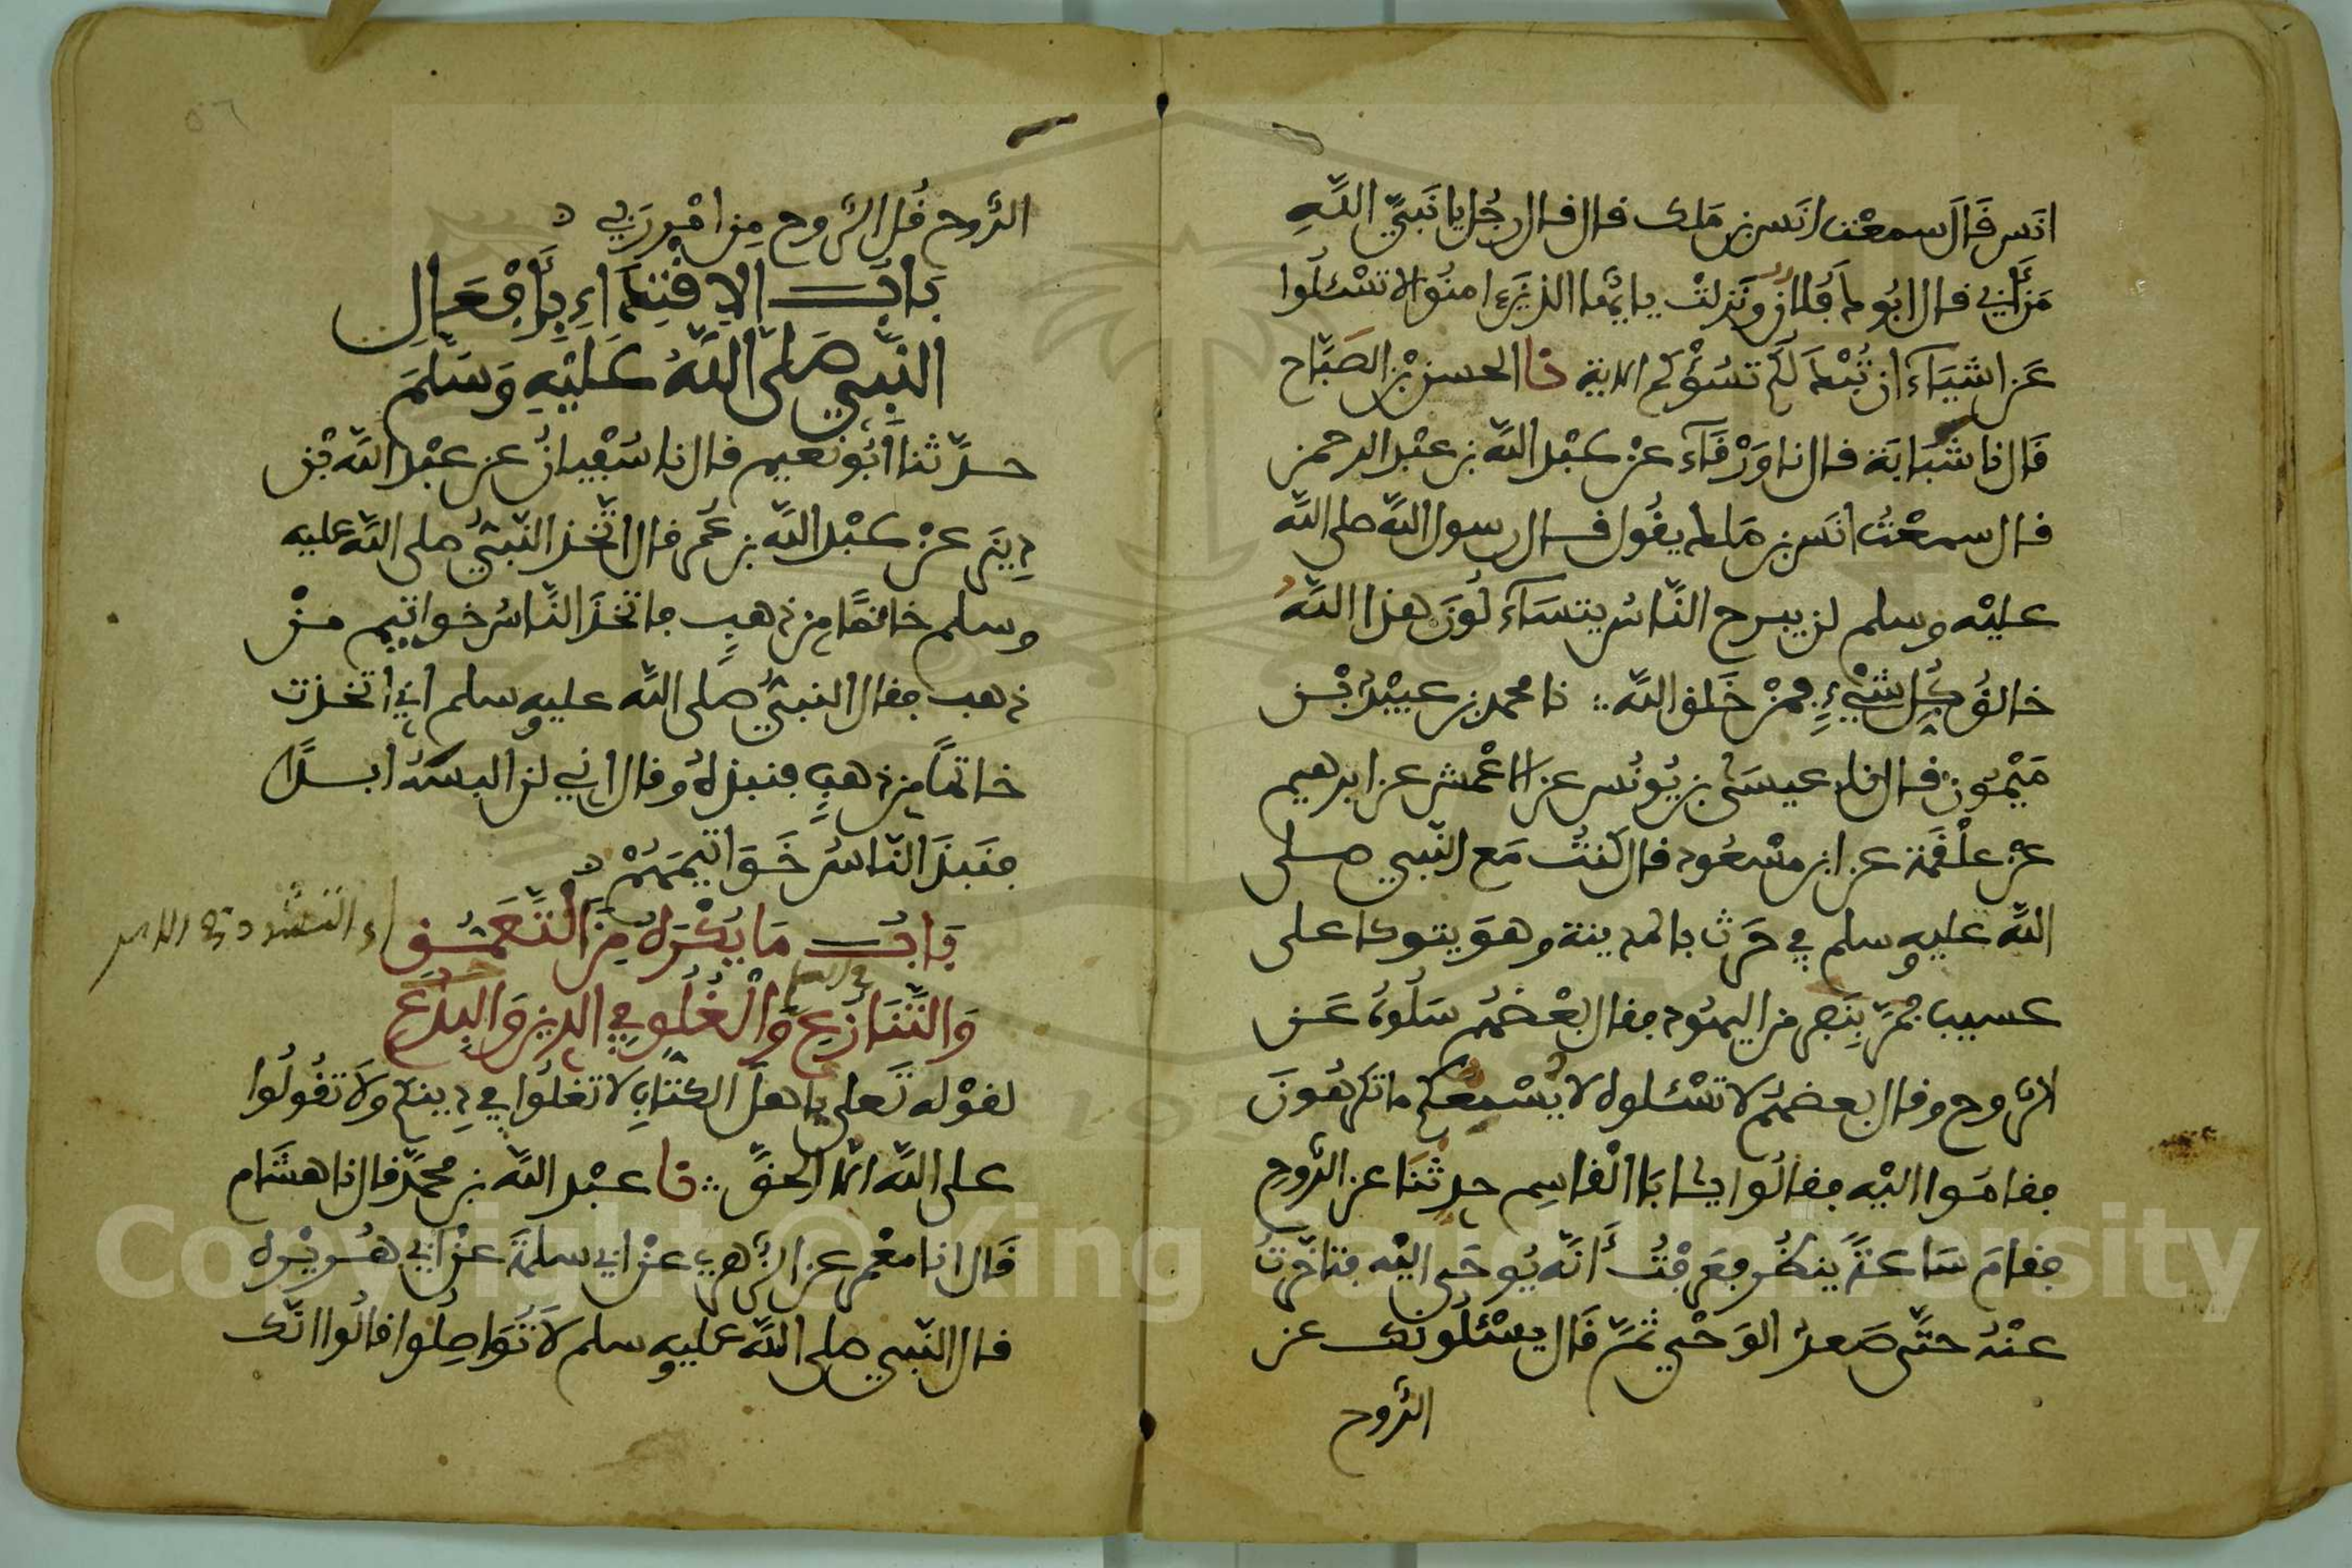 انَس قَالَ سمعْت انَس بن مَلك قال قال رجُل يا نَبيَّ اللَّهِ
مَنْ أَبي قال ابُوك فُلان ونَزلتْ يايُّها الذينَ ءامنُوا لا تسْئلُوا
عَن اشيَآءَ ان تُبْدَ لَكُم تسُؤْكم الاية نا الحسن بْن الصَبَّاح
قَال نا شَبَابَة قال نا وَرْقَآء عنْ عبْد اللَّه بن عبْد الرحمن
قال سمعْتُ انَس بن مَالك يقُول قال رسول اللَّه صلى اللَّه
عليْه وسلم لن يبرح النَّاسُ يتسَآءَلُونَ هذا اللَّهُ
خالقُ كُلِّ شيْءٍ فمنْ خَلق اللَّه نا محمد بن عبيْد بْن
مَيْمُون قال نا عيسَى بن يُونُس عن الاعْمش عن ابرهيم
عنْ علْقَمَة عن ابن مسْعُود قال كنتُ مَع النَّبي صلى
اللَّه عليه وسلم في حَرْث بالمدينة وهوَ يتوكا على
عسيب فمرَّ بِنَفر من اليهُود فقال بعْضُهم سَلُوهُ عَن
الرُّوح وقال بعضهُم لا تسْئلوه لا يُسْمعُكم ما تكرهُونَ
فقامُوا اليْه فقالُوا يا ابَا الْقاسِم حدِّثنَا عن الرُّوحِ
فقامَ سَاعةً ينظُر فعَرفْتُ أَنَّه يُوحَى اليْه فتاخَّرتُ
عنْهُ حتَّى صَعدَ الوَحْي ثمَّ قَال يسْئلُونك عن
الرُّوح
الرُّوح قُل الرُّوح مِن امْر رَبي
بَابُ الاِقْتِدَاءِ بِأَفْعَالِ
النَّبِيِّ صَلَى اللَّهُ عَلَيْهِ وَسَلَّمَ
حدَّثنا أبُو نُعيم قال نا سُفْيانُ عن عبْد اللَّه بْن
دِينَر عنْ عبْد اللَّه بن عُمر قال اتَّخذ النَّبيُّ صلى اللَّه عليه
وسلم خاتمًا مِن ذهبٍ فاتخذَ النَّاسُ خواتِيم منْ
ذهب فقال النبيُّ صلى اللَّه عليه وسلم انِّي اتخذت
خاتمًا مِن ذهبٍ فنبذهُ وقال انِّي لن البسَهُ ابدًا
فنَبذَ النَّاسُ خَوَاتِيمَهُمْ
بَابُ مَا يُكْرَهُ مِنَ التَّعَمُّقِ
اي التشدد في الامر
في العلم
وَالتَّنَازُعِ وَالْغُلُوِّ فِي الدِّينِ وَالبِدَعِ
لقوْله تَعلى ياهلَ الكتَابِ لا تغلُوا في دِينكم ولَا تقُولُوا
على اللَّه الَّا الحقَّ نا عبْد اللَّه بن محمَّد قال نا هشَام
قَال انا معْمر عن الزُّهري عنْ ابي سلمَةَ عنْ ابي هُريْره
قال النَّبي صلى اللَّه عليه وسلم لَا تُوَاصِلُوا قالُوا انَّك